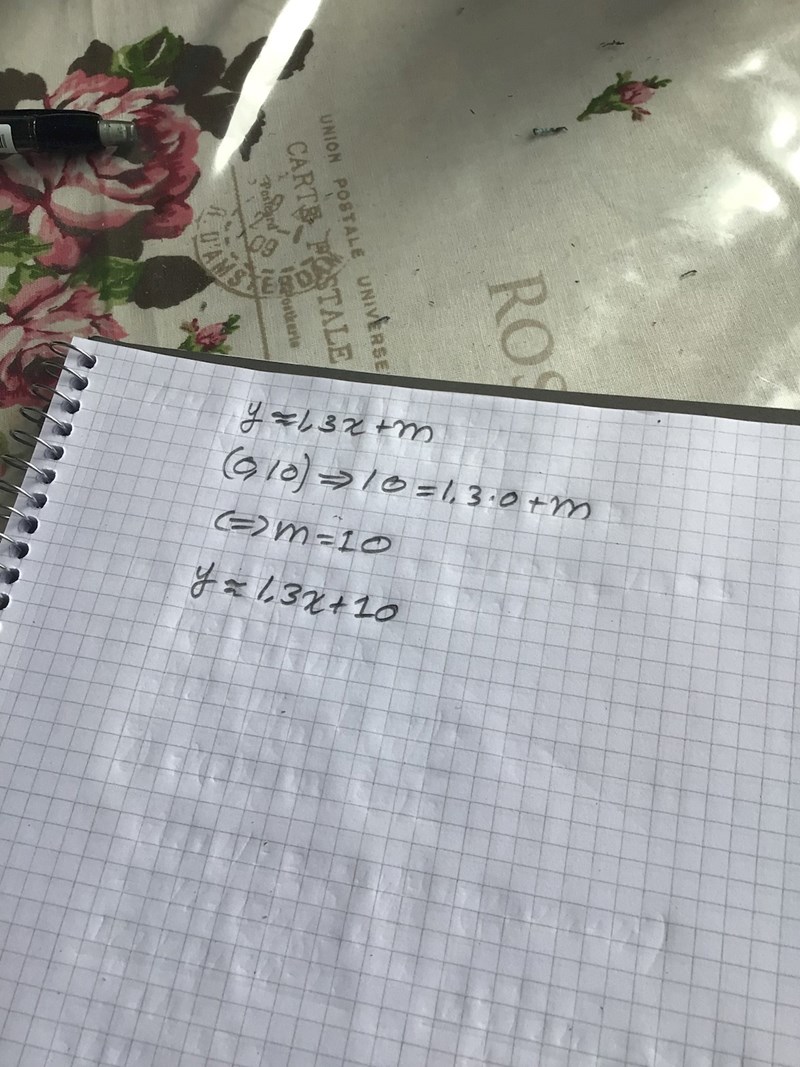 UNION POSTALE UNIVERSE
CARTE POSTALE
D'AMS
ROS
y≈1,3x+m
(0,10)⇒10=1,3·0+m
⇔m=10
y≈1,3x+10